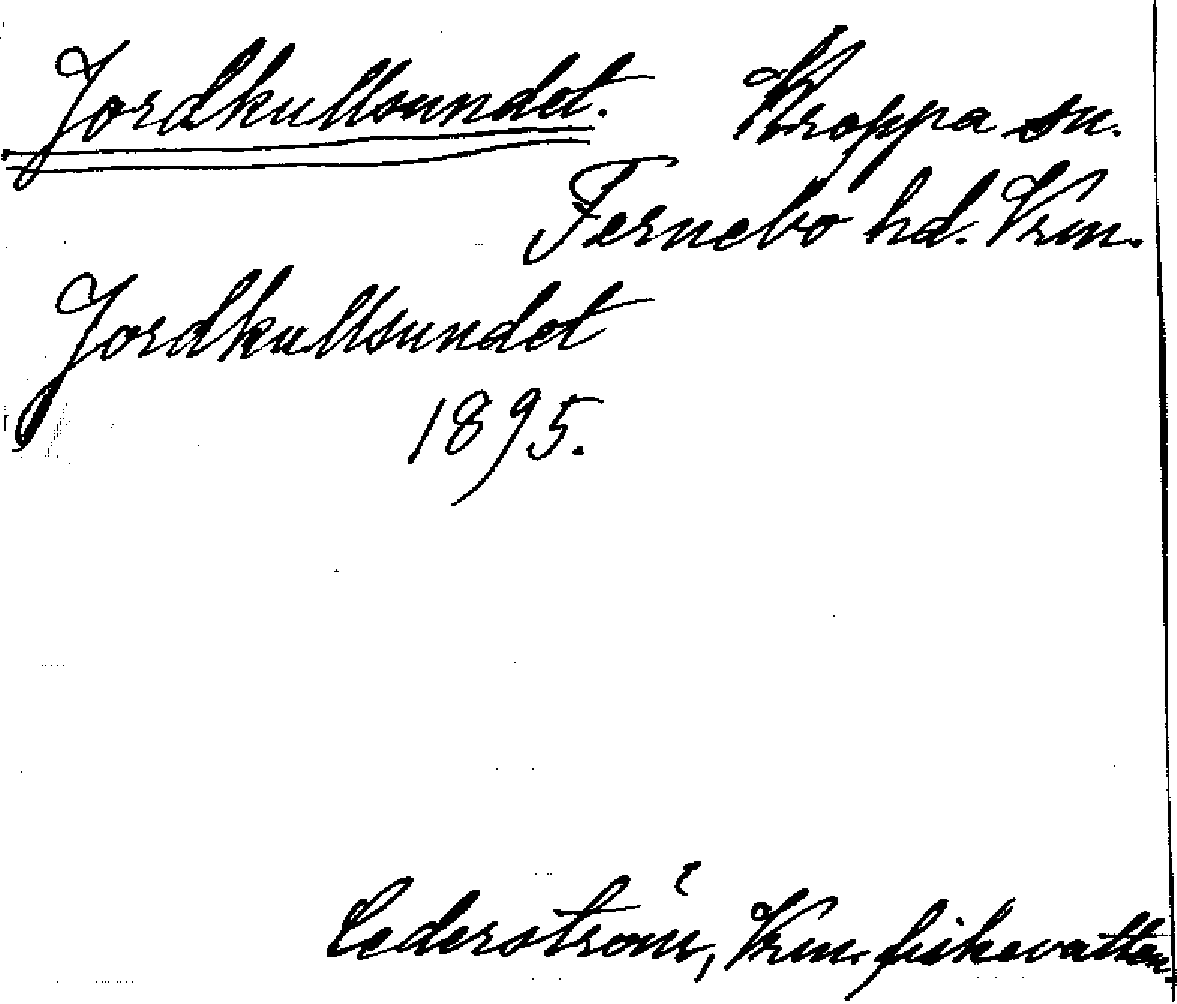 Jordkullsundet. Kroppa sn.
Fernebo hd. Vrm.
Jordkullsundet
1895.
Cederström, Vrm. fiskevatten.